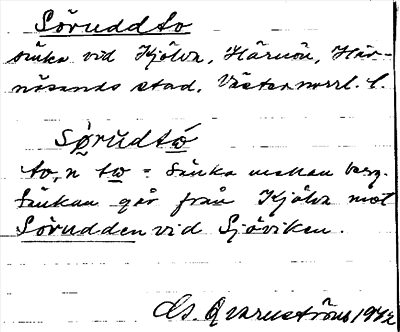 Söruddto
sänka vid Kjölva, Härnön, Här-
nösands stad, Västernorrl. l.
sø̀rùdtω
to, n tω = sänka mellan berg.
Sänkan går från Kjölva mot
Sörudden vid Sjöviken.
Qvarnström 1942